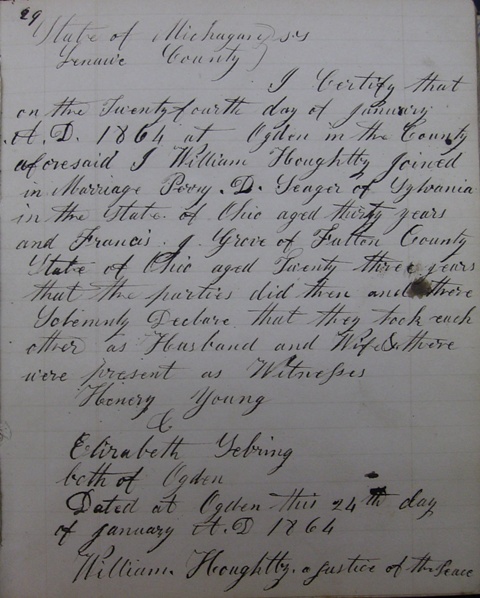 29
State of Michagan } ss
Lenawe County }
I Certify that
on the Twentyfourth day of January
A.D. 1864 at Ogden in the County
aforesaid I William Houghtby Joined
in Marriage Perry. D. Seager of Sylvania
in the State of Ohio aged thirty years
and Francis. J. Grove of Fulton County
State of Ohio aged Twenty three years
that the parties did then and there
Solemnly Declare that they took each
other as Husband and Wife & there
were present as Witnesses
Henery Young
&
Elizabeth Sebring
both of Ogden
Dated at Ogden this 24th day
of January A.D 1864
William. Houghtby. a Justice of the Peace